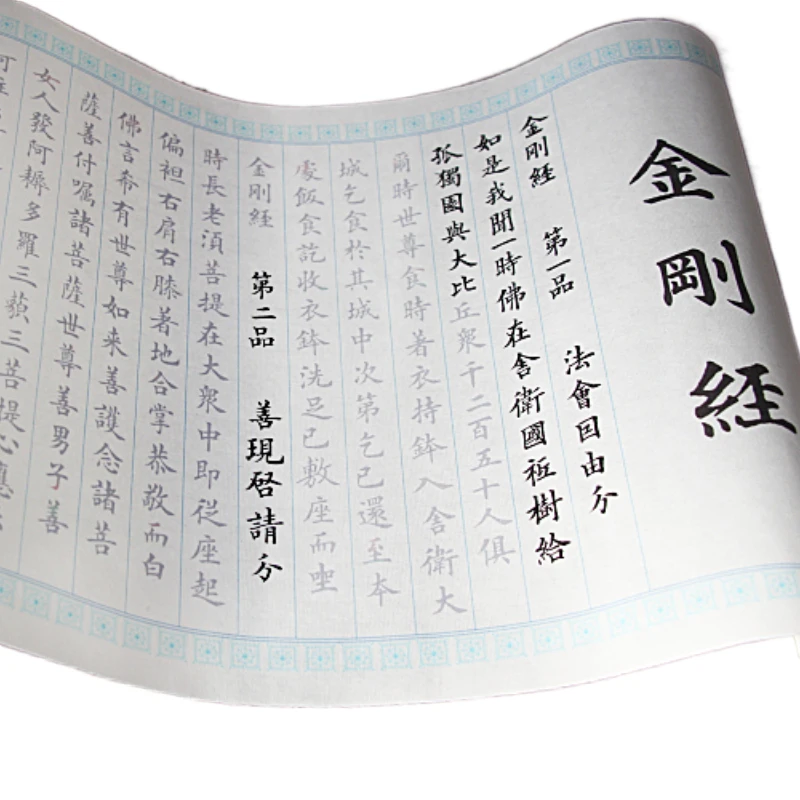 金剛経
金剛経 第一品 法會因由分
如是我聞一時佛在舍衛國祗樹給
孤獨園與大比丘衆千二百五十人俱
爾時世尊食時著衣持鉢入舍衛大
城乞食於其城中次第乞已還至本
處飯食訖收衣鉢洗足已敷座而坐
金剛経 第二品 善現啓請分
時長老須菩提在大衆中即從座起
偏袒右肩右膝著地合掌恭敬而白
佛言希有世尊如来善護念諸菩
薩善付囑諸菩薩世尊善男子善
女人發阿耨多羅三藐三菩提心應